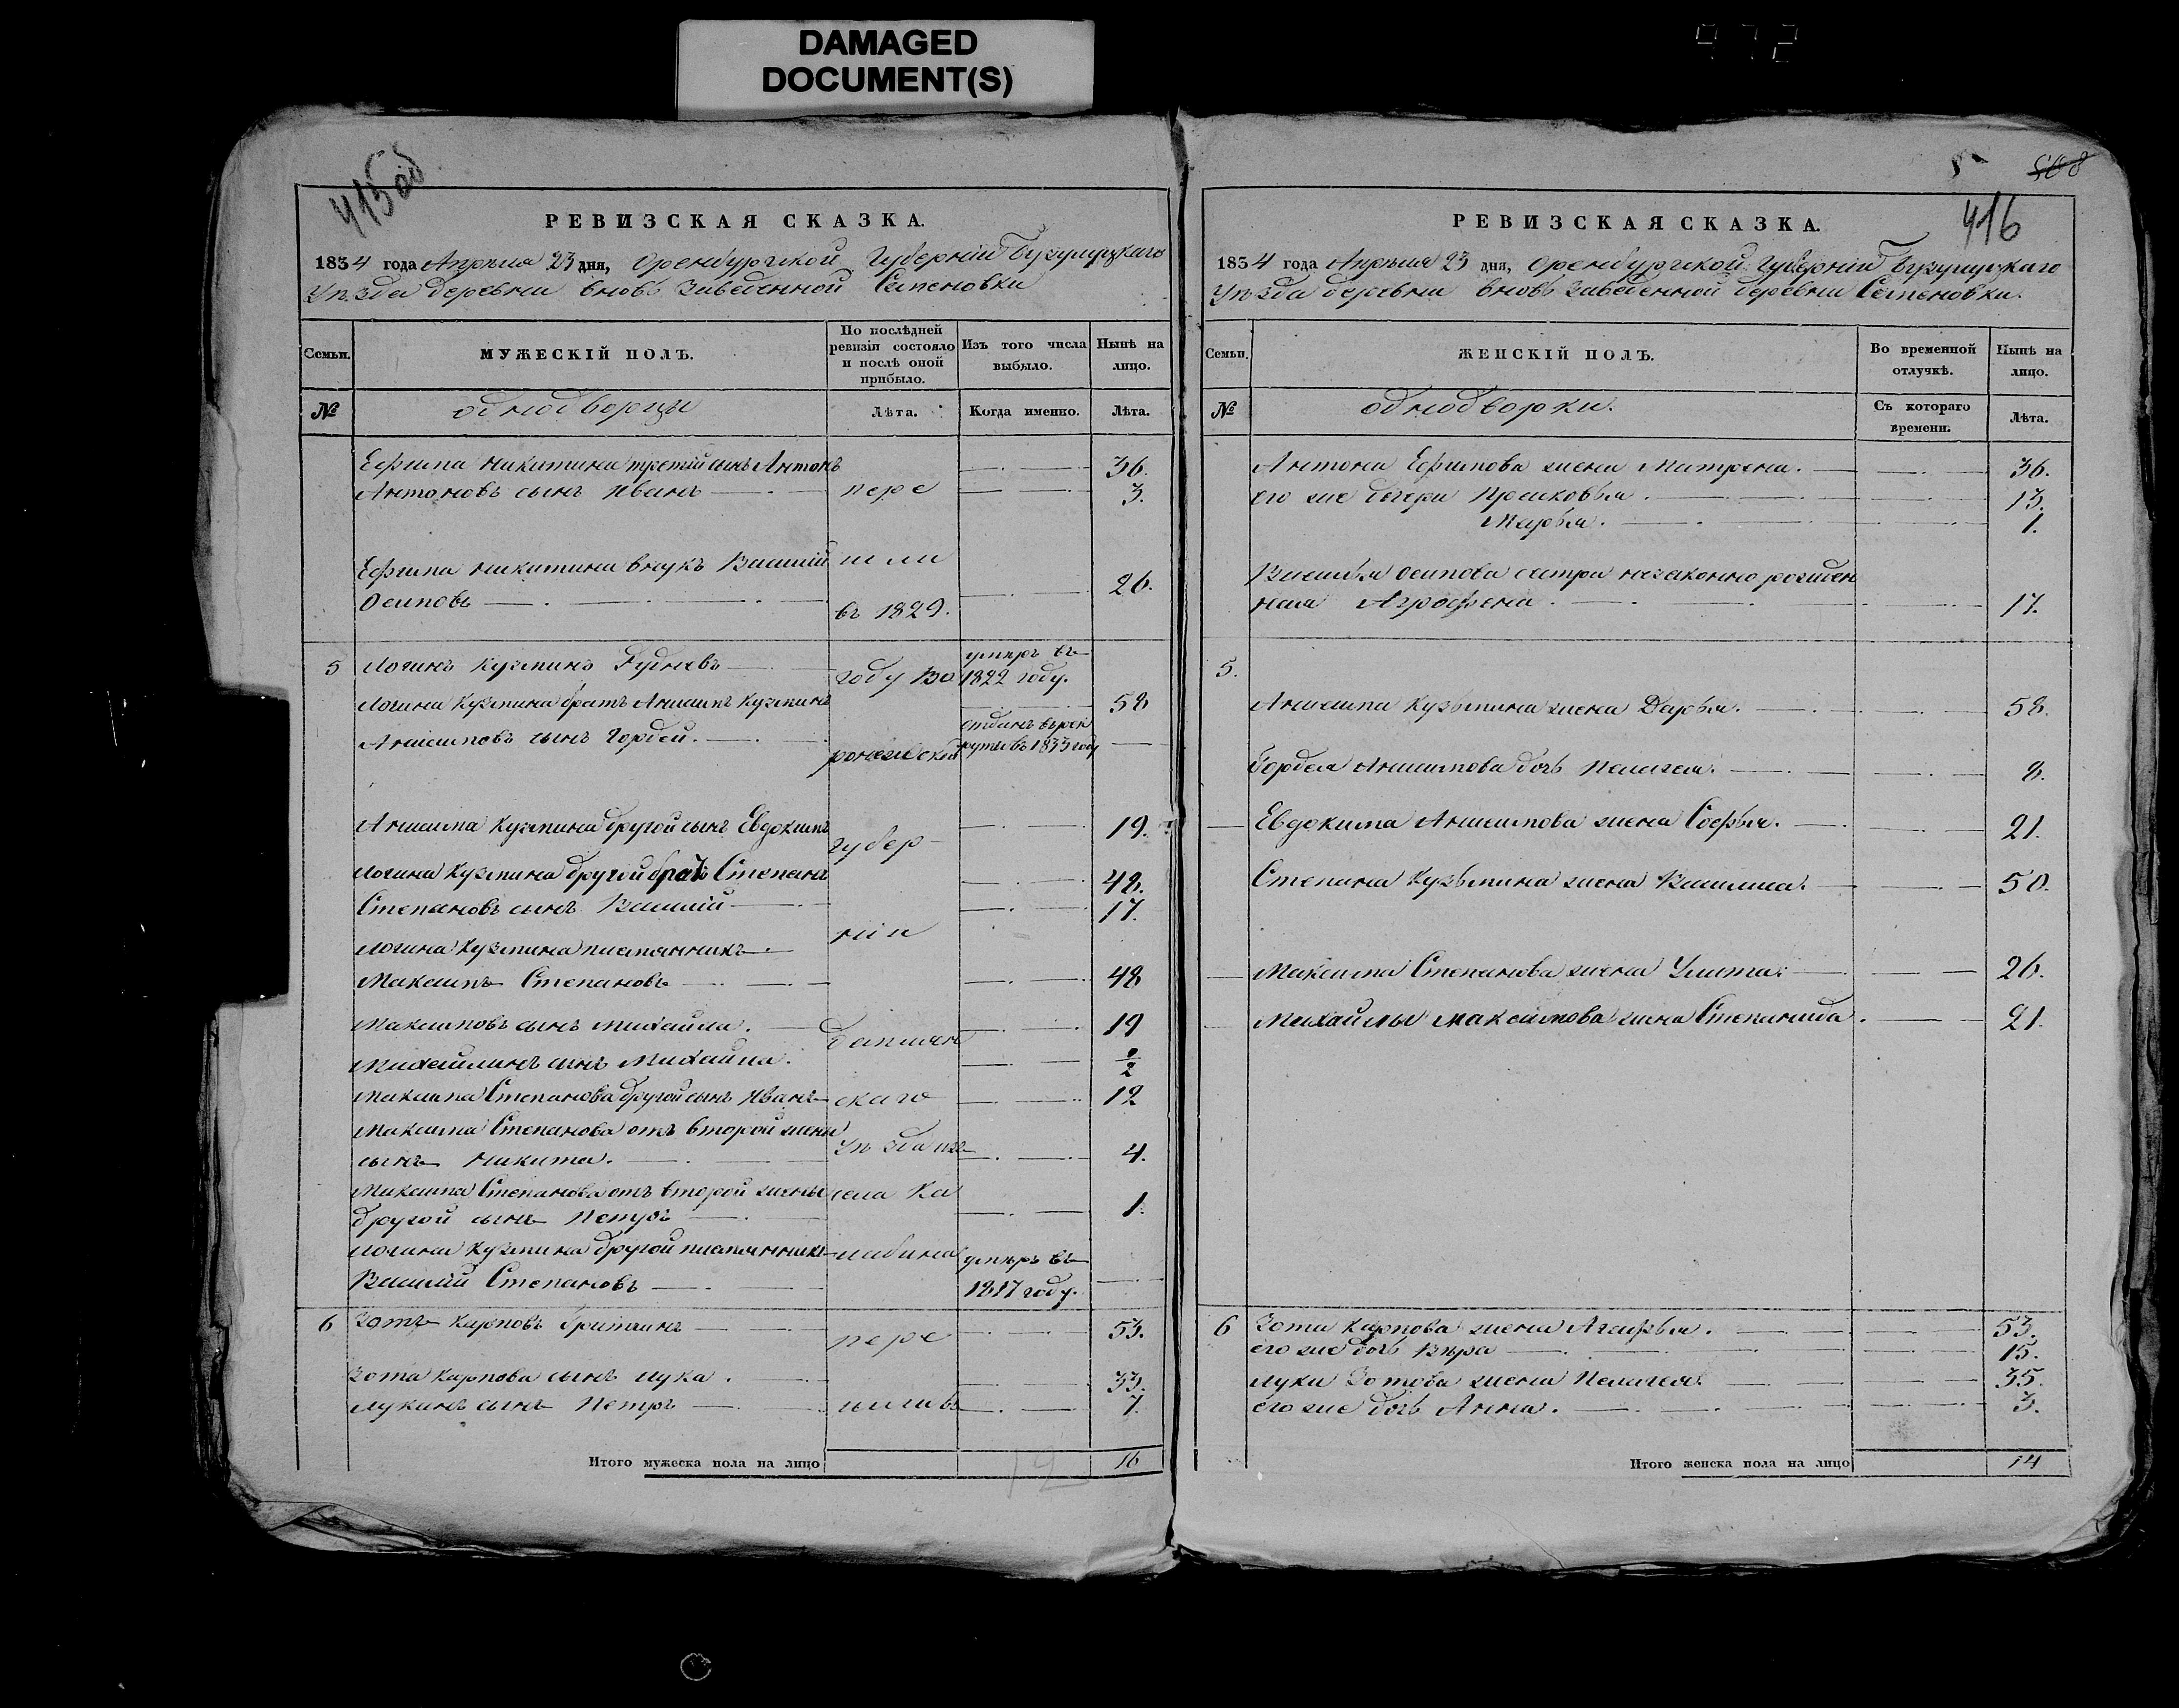 DAMAGED
DOCUMENT(S)
972
415 об
РЕВИЗСКАЯ СКАЗКА.
1834 года Апреля 23 дня, Оренбургской Губерніи Бузулуцкаго
Уѣзда деревни вновь заведенной Семеновки
Семьи.
МУЖЕСКІЙ ПОЛЪ.
По послѣдней ревизіи состояло и послѣ оной прибыло.
Изъ того числа выбыло.
Нынѣ на лицо.
№
однодворцы
Лѣта.
Когда именно.
Лѣта.
Ефима Никитина третій сынъ Антонъ 36.
Антоновъ сынъ Иванъ пере 3.
Ефима Никитина внукъ Василій шли
Осиповъ въ 1829. 26.
5 Логинъ Кузминъ Рудневъ году Во умеръ въ 1822 году.
Логина Кузмина братъ Анисимъ Кузминъ 58
Анисимовъ сынъ Гордей. ронежской отданъ въ рек руты въ 1833 году
Анисима Кузмина другой сынъ Евдокимъ губер 19.
Логина Кузмина другой братъ Степанъ 48.
Степановъ сынъ Василій 17.
Логина Кузмина племянникъ ніи
Максимъ Степановъ 48
Максимовъ сынъ Михайла. 19
Михайлинъ сынъ Михайла. ½
Максима Степанова другой сынъ Иванъ скаго 12
Максима Степанова отъ второй жены
сынъ Никита. Уѣзда изъ 4.
Максима Степанова отъ второй жены села Ка
другой сынъ Петръ 1.
Логина Кузмина другой племянникъ умеръ въ
Василій Степановъ 1817 году.
6 Зотъ Карповъ пере 53.
Зота Карпова сынъ Лука. 33.
Лукинъ сынъ Петръ 7.
Итого мужеска пола на лицо 16
12
508
416
РЕВИЗСКАЯ СКАЗКА.
1834 года Апреля 23 дня, Оренбургской Губерніи Бузулуцкаго
Уѣзда деревни вновь заведенной деревни Семеновки.
Семьи.
ЖЕНСКІЙ ПОЛЪ.
Во временной отлучкѣ.
Нынѣ на лицо.
№
однодворки.
Съ котораго времени.
Лѣта.
Антона Ефимова жена Матрена. 36.
его же дочери Прасковья. 13.
Марья. 1.
Василья Осипова сестра незаконно рожден
ная Агрофена. 17.
5.
Анисима Кузьмина жена Дарья. 58.
Гордея Анисимова дочь Пелагея. 8.
Евдокима Анисимова жена Софья. 21.
Степана Кузьмина жена Василиса. 50.
Максима Степанова жена Улита. 26.
Михайлы Максимова жена Степанида. 21.
6 Зота Карпова жена Агафья. 53.
его же дочь Вѣра 15.
Луки Зотова жена Пелагея. 35.
его же дочь Анна. 3.
Итого женска пола на лицо 14